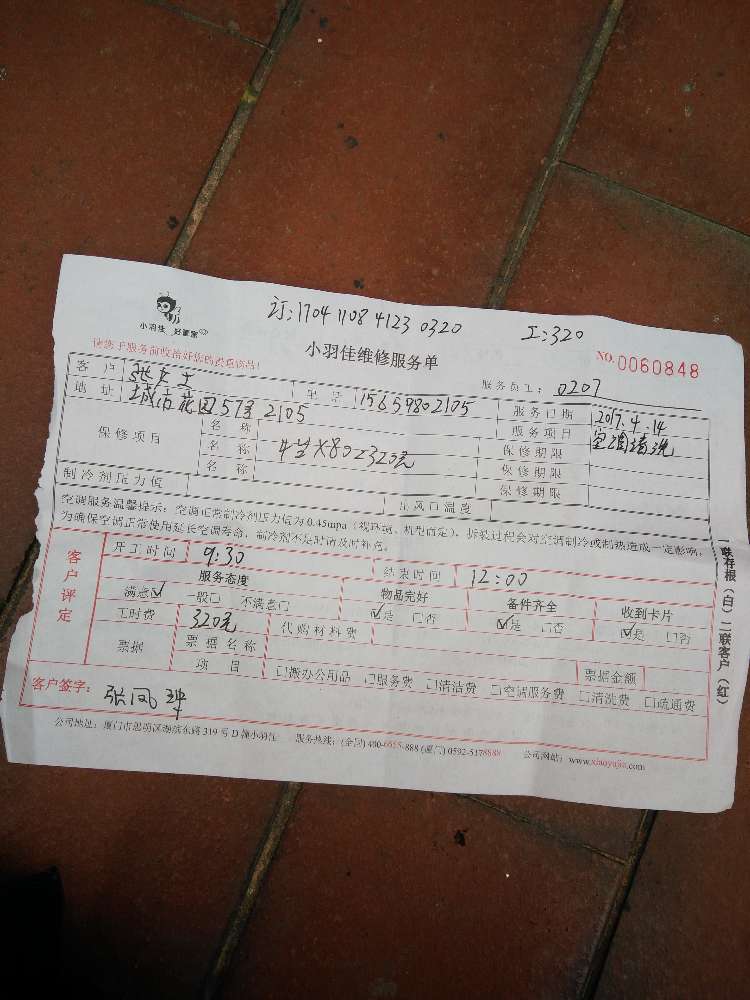 订:1704 1108 4123 0320 工:320
小羽佳 好管家
小羽佳维修服务单
NO.0060848
请您于服务前收拾好您的贵重物品!
服务员工: 0207
客户 张女士 电话 15659802105 服务日期 2017.4.14
地址 城市花园57号2105 服务项目 空调清洗
保修项目 名称 保修期限
名称 4台X80=320元 保修期限
名称 保修期限
制冷剂压力值 出风口温度
空调服务温馨提示:空调正常制冷剂压力值为0.45mpa(视环境、机型而定)。拆装过程会对空调制冷或制热造成一定影响,
为确保空调正常使用延长空调寿命,制冷剂不足时请及时补充。
客户评定
开工时间 9:30 结束时间 12:00
服务态度 物品完好 备件齐全 收到卡片
满意☑ 一般□ 不满意□ ☑是 □否 ☑是 □否 ☑是 □否
工时费 320元 代购材料费
票据 票据名称 票据金额
项目 □搬办公用品 □服务费 □清洁费 □空调服务费 □清洗费 □疏通费
客户签字: 张凤
公司地址:厦门市思明区湖滨东路319号D幢小羽佳 服务热线:(全国)400-6655-888 (厦门)0592-5178888 公司网站:www.xiaoyujia.com
一联存根(白)二联客户(红)